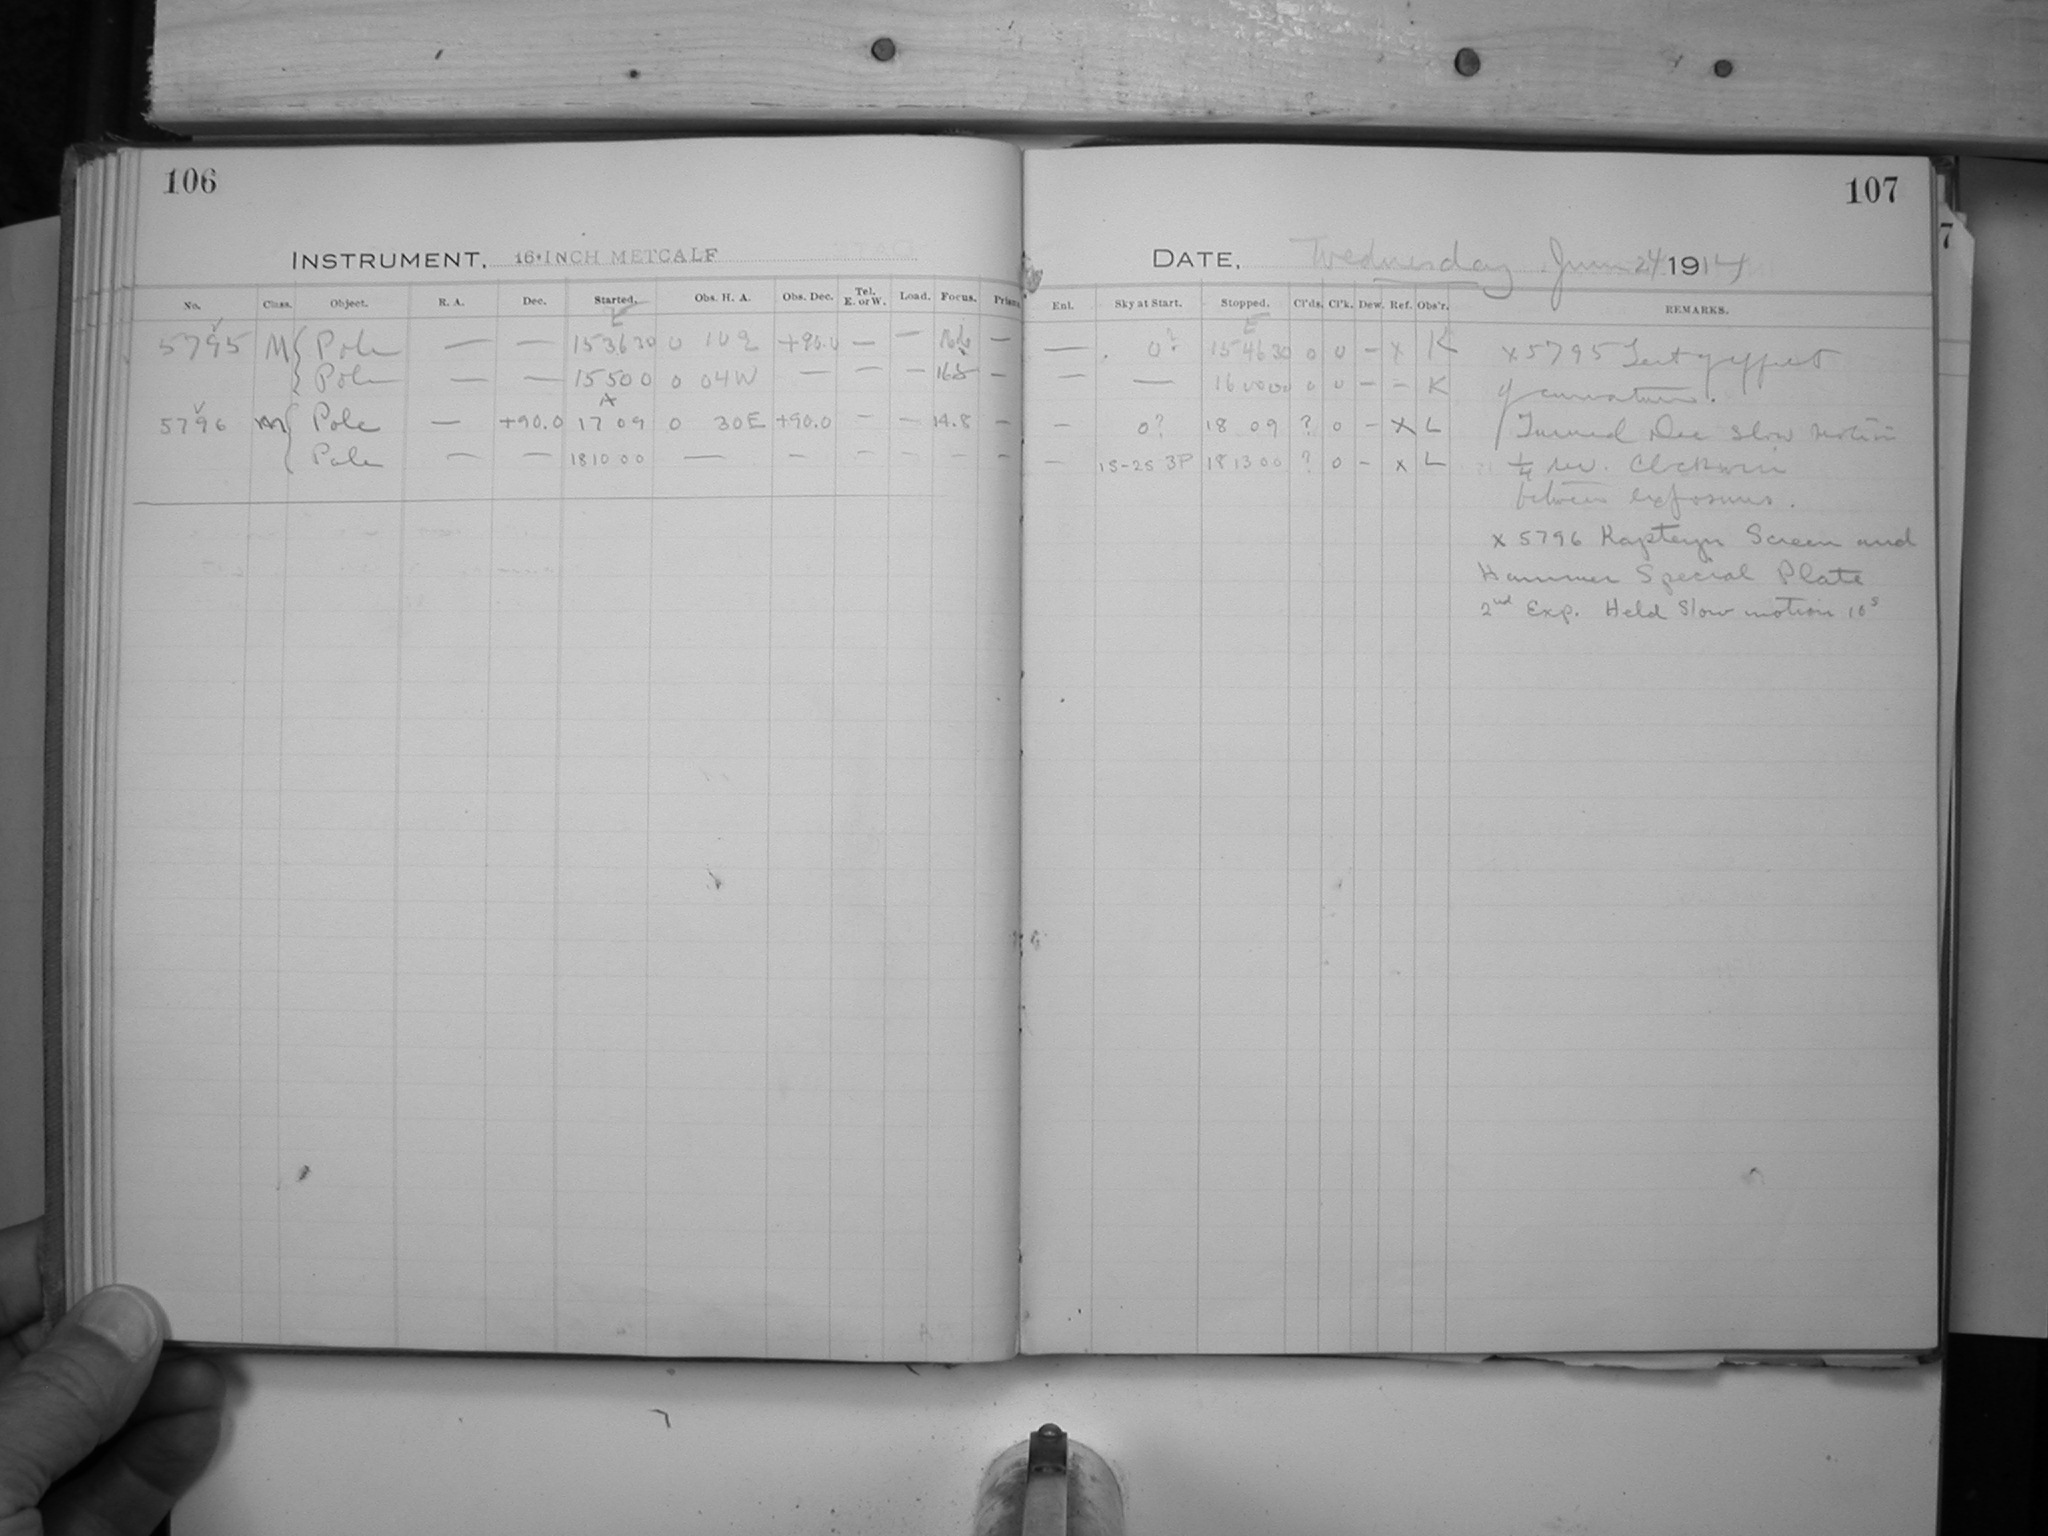 106
107
INSTRUMENT, 16-INCH METCALF
DATE, Wednesday June 24 1914
No. Class. Object. R. A. Dec. Started. Obs. H. A. Obs. Dec. Tel. E. or W. Load. Focus. Prism.
Enl. Sky at Start. Stopped. Cl'ds. Cl'k. Dew. Ref. Obs'r. REMARKS.
E
E
5795 M Pole — — 15 36 30 0 +90.0 — — —
— 0? 15 46 30 0 0 – x K x 5795 Test of effect
Pole — — 15 50 0 0 04W — — — 16.8 —
— — 16 00 00 0 0 – – K of curvature.
A
5796 M Pole — +90.0 17 09 0 30E +90.0 – – 14.8 –
– 0? 18 09 ? 0 – x L Turned Dec slow motion
Pole — — 18 10 00 — – – – – –
– 15-25 3P 18 13 00 ? 0 – x L 1/4 rev. Clockwise
between exposures.
x 5796 Kapteyn Screen and
Hammer Special Plate
2nd Exp. Held Slow motion 10s
7